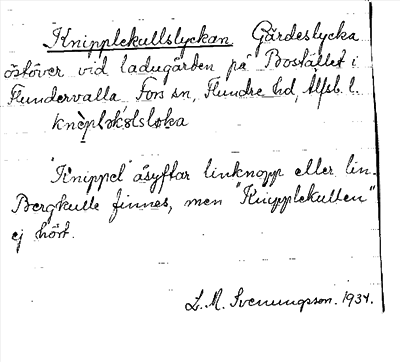 Knipplekullslyckan Gärdeslycka
öståver vid ladugården på Bostället i
Flundervalla, Fors sn, Flundre hd, Älfsb. l.
knèpləkəlsløka
"Knippel" åsyftar linknopp eller lin.
Bergkulle finnes, men "Knipplekullen"
ej hört.
L. M. Svenungsson. 1934.